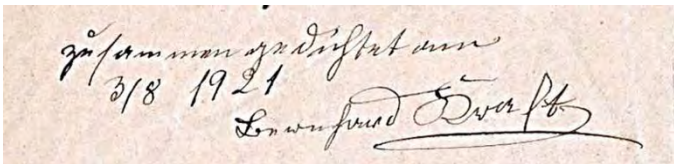 zusammen gedichtet am
3/8 1921
Bernhard Kraft